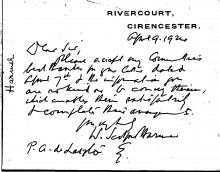 RIVERCOURT,
CIRENCESTER.
April 9. 1920
Dear Sir,
Please accept my Committee's
best thanks for your letter dated
April 7th & the information you
are so kind as to convey therein,
which enables them satisfactorily
to complete their arrangements.
Yours faithfully
W. Scotford Harmer
P. A. de László Esq
Harmer